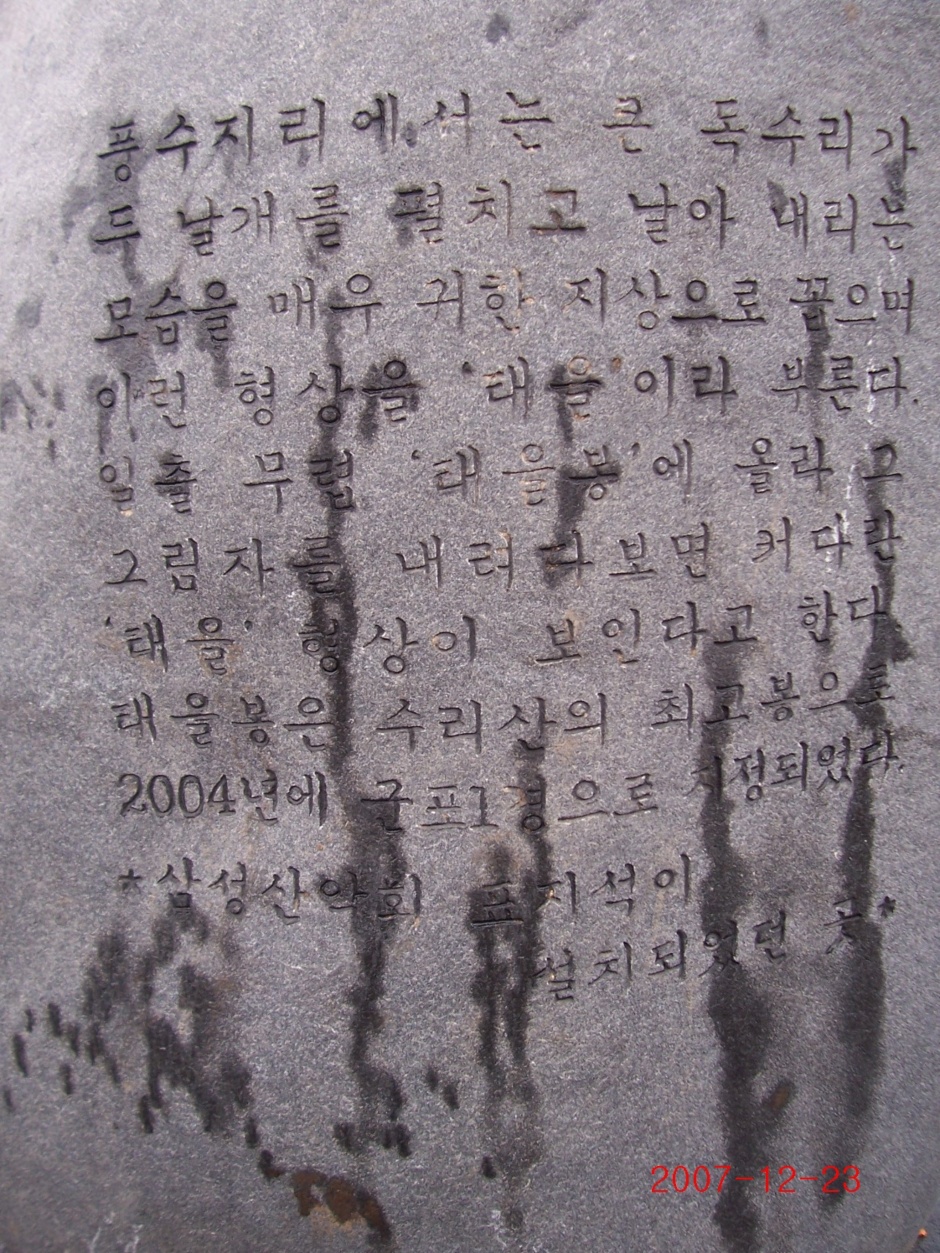 풍수지리에서는 큰 독수리가
두 날개를 펼치고 날아 내리는
모습을 매우 귀한 지상으로 꼽으며
이런 형상을 '태을'이라 부른다.
일출 무렵 '태을봉'에 올라 그
그림자를 내려다보면 커다란
'태을' 형상이 보인다고 한다
태을봉은 수리산의 최고봉으로
2004년에 군포1경으로 지정되었다.
*삼성산악회 표지석이
설치되었던 곳*
2007-12-23